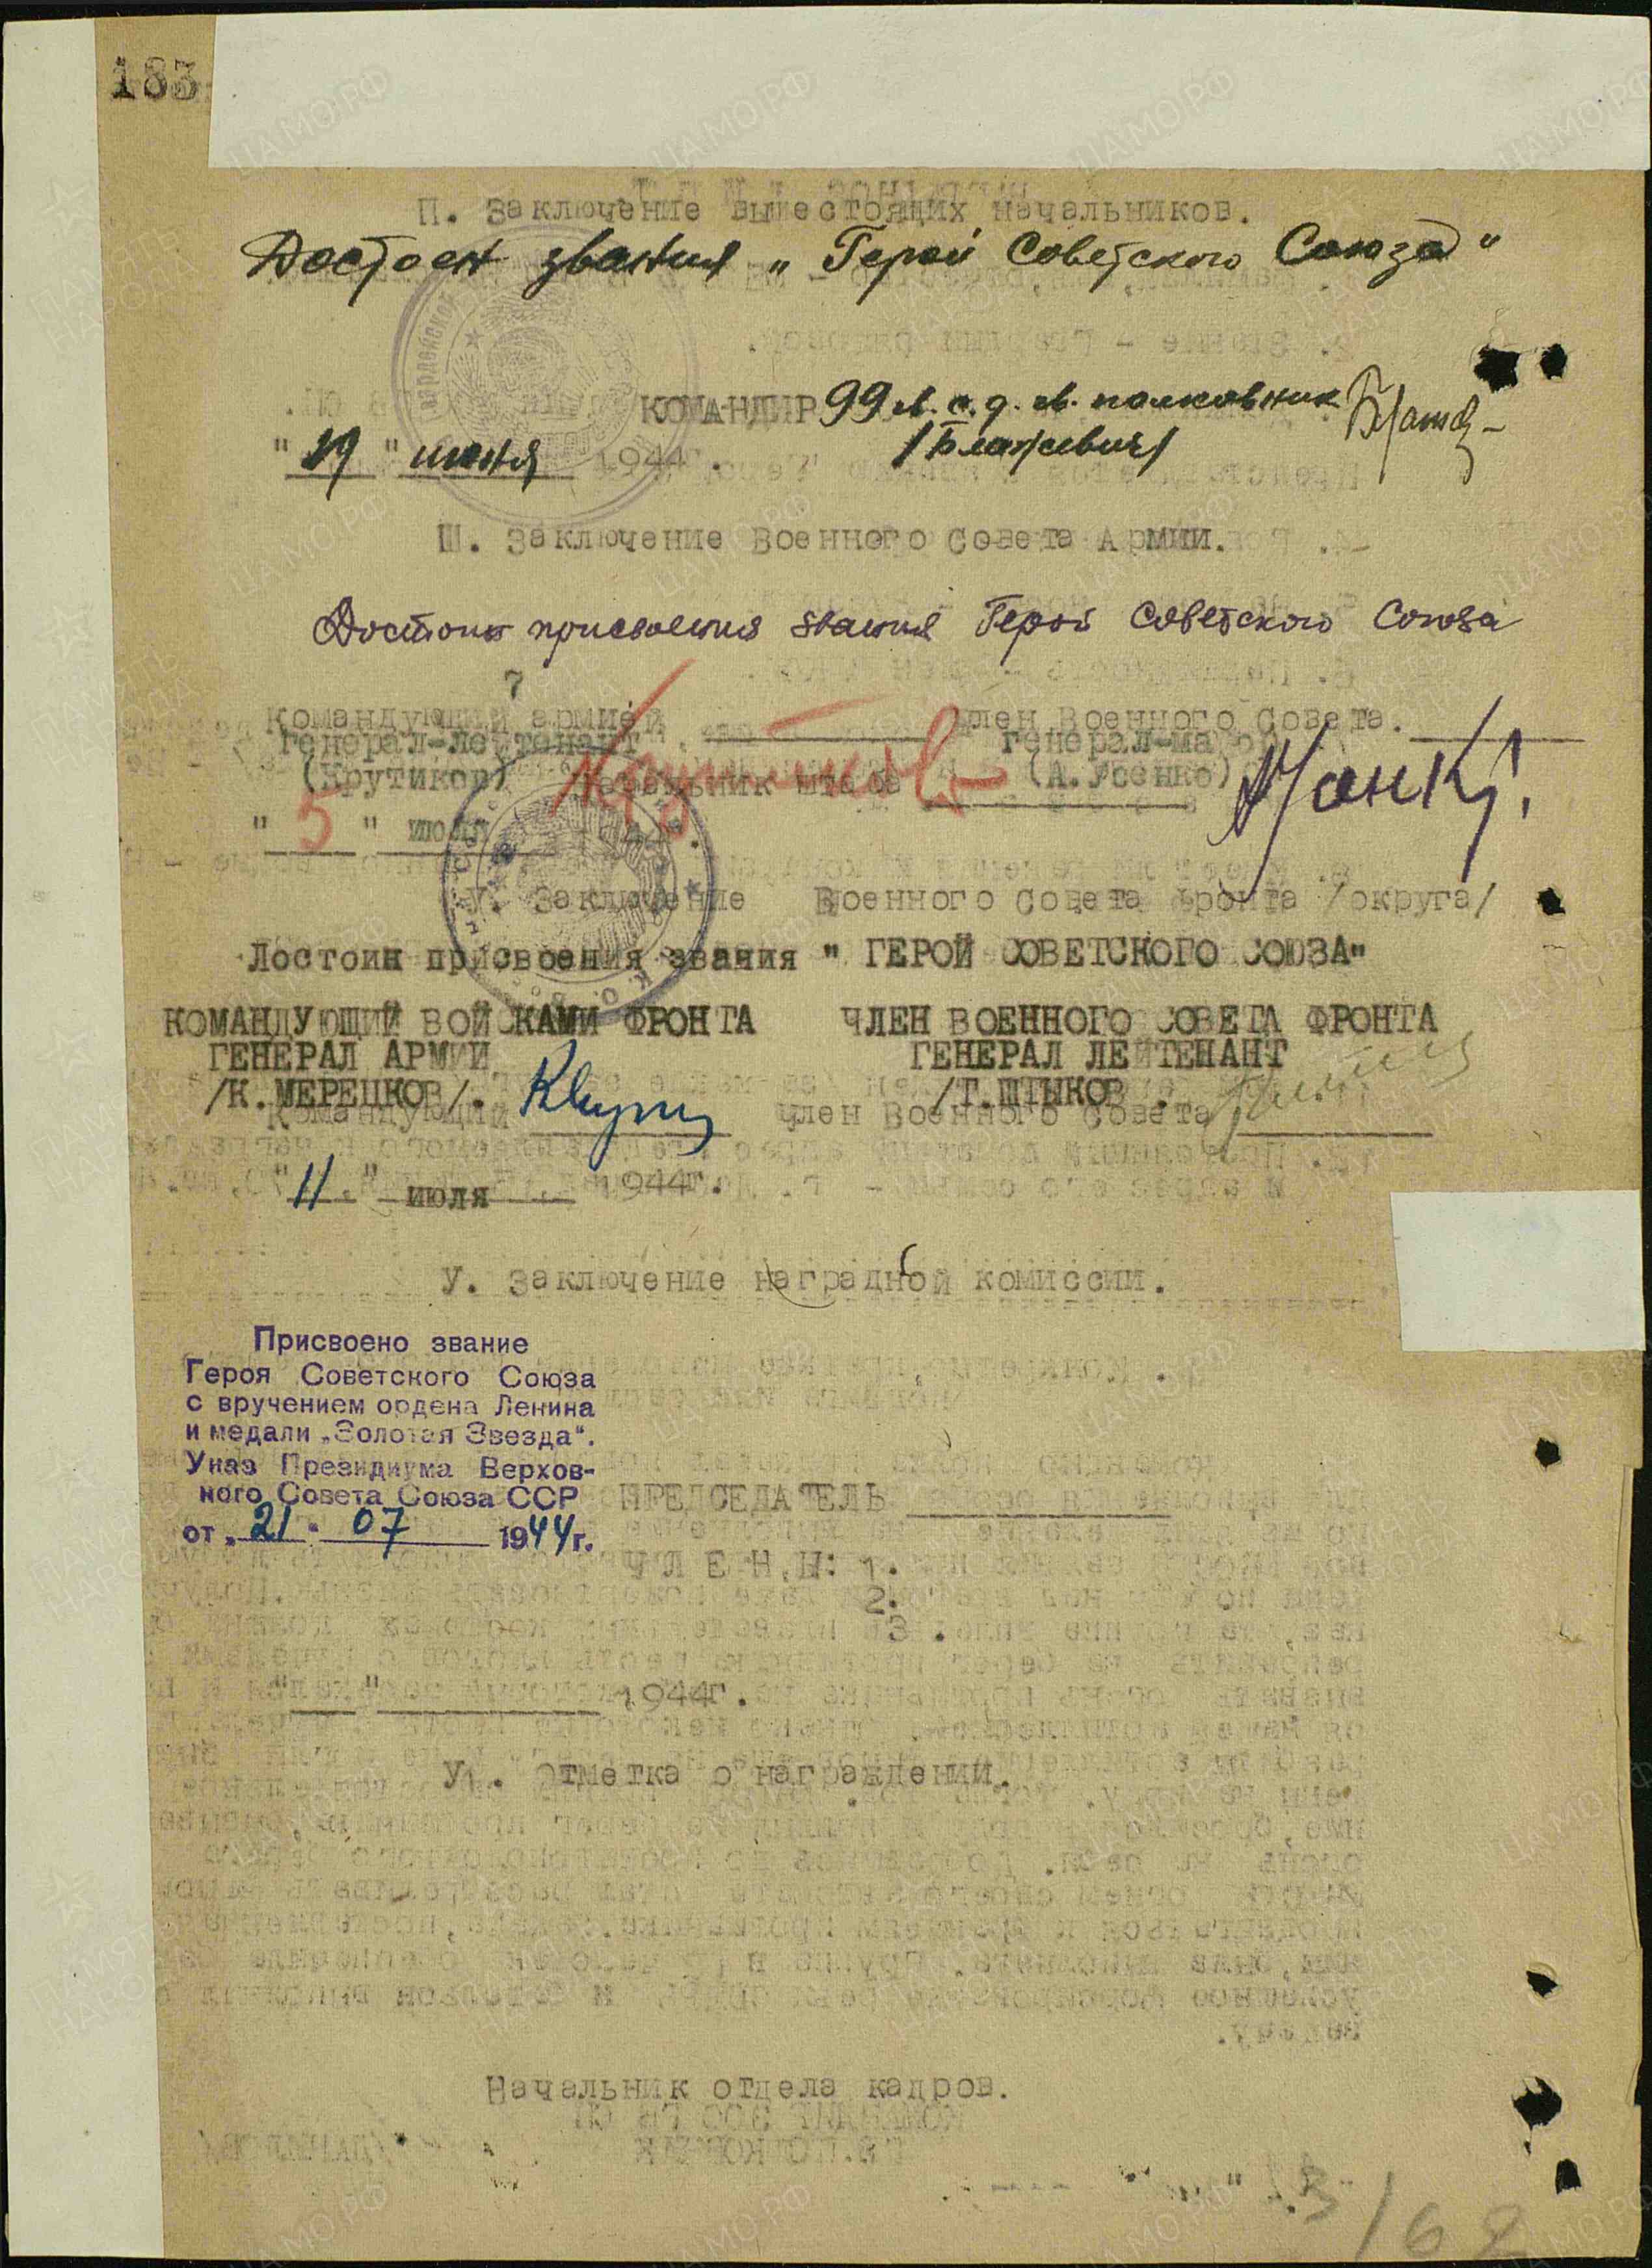 183
П. Заключение вышестоящих начальников.
Достоен звания „Герой Советского Союза"
КОМАНДИР 99 гв. с. д. гв. полковник
/Блажевич/
"29" июня 1944г.
Ш. Заключение Военного Совета Армии.
Достоин присвоения звания Герой Советского Союза
7
Командующий армией Член Военного Совета.
генерал-лейтенант генерал-майор
(Крутиков) Начальник штаба (А.Усенко)
"5" июля
У. Заключение Военного Совета Фронта /округа/
Достоин присвоения звания " ГЕРОЙ СОВЕТСКОГО СОЮЗА"
КОМАНДУЮЩИЙ ВОЙСКАМИ ФРОНТА ЧЛЕН ВОЕННОГО СОВЕТА ФРОНТА
ГЕНЕРАЛ АРМИИ ГЕНЕРАЛ ЛЕЙТЕНАНТ
/К.МЕРЕЦКОВ/. /Т.ШТЫКОВ
Командующий Член Военного Совета
"11" июля 1944г.
У. Заключение наградной комиссии.
Присвоено звание
Героя Советского Союза
с вручением ордена Ленина
и медали „Золотая Звезда".
Указ Президиума Верхов-
ного Совета Союза ССР
от „21" 07 1944г.
ПРЕДСЕДАТЕЛЬ
ЧЛЕНЫ: 1.
2.
3.
" " 1944г.
У1. Отметка о награждении.
Начальник отдела кадров.